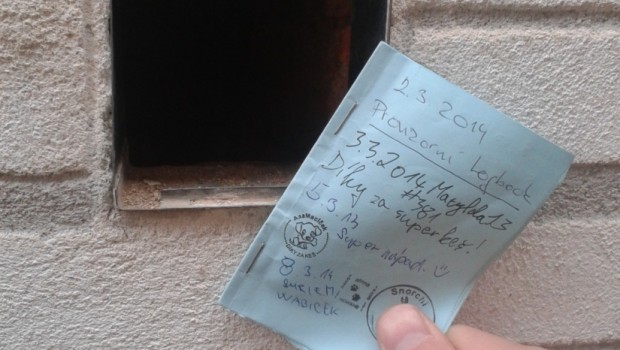 2.3 2014
Provizorní Logbook
3.3.2014 Magdda13
#381
Díky za super keš!
5.3.13
Super nápad.
8 3.14
WABISEK
Snorchi